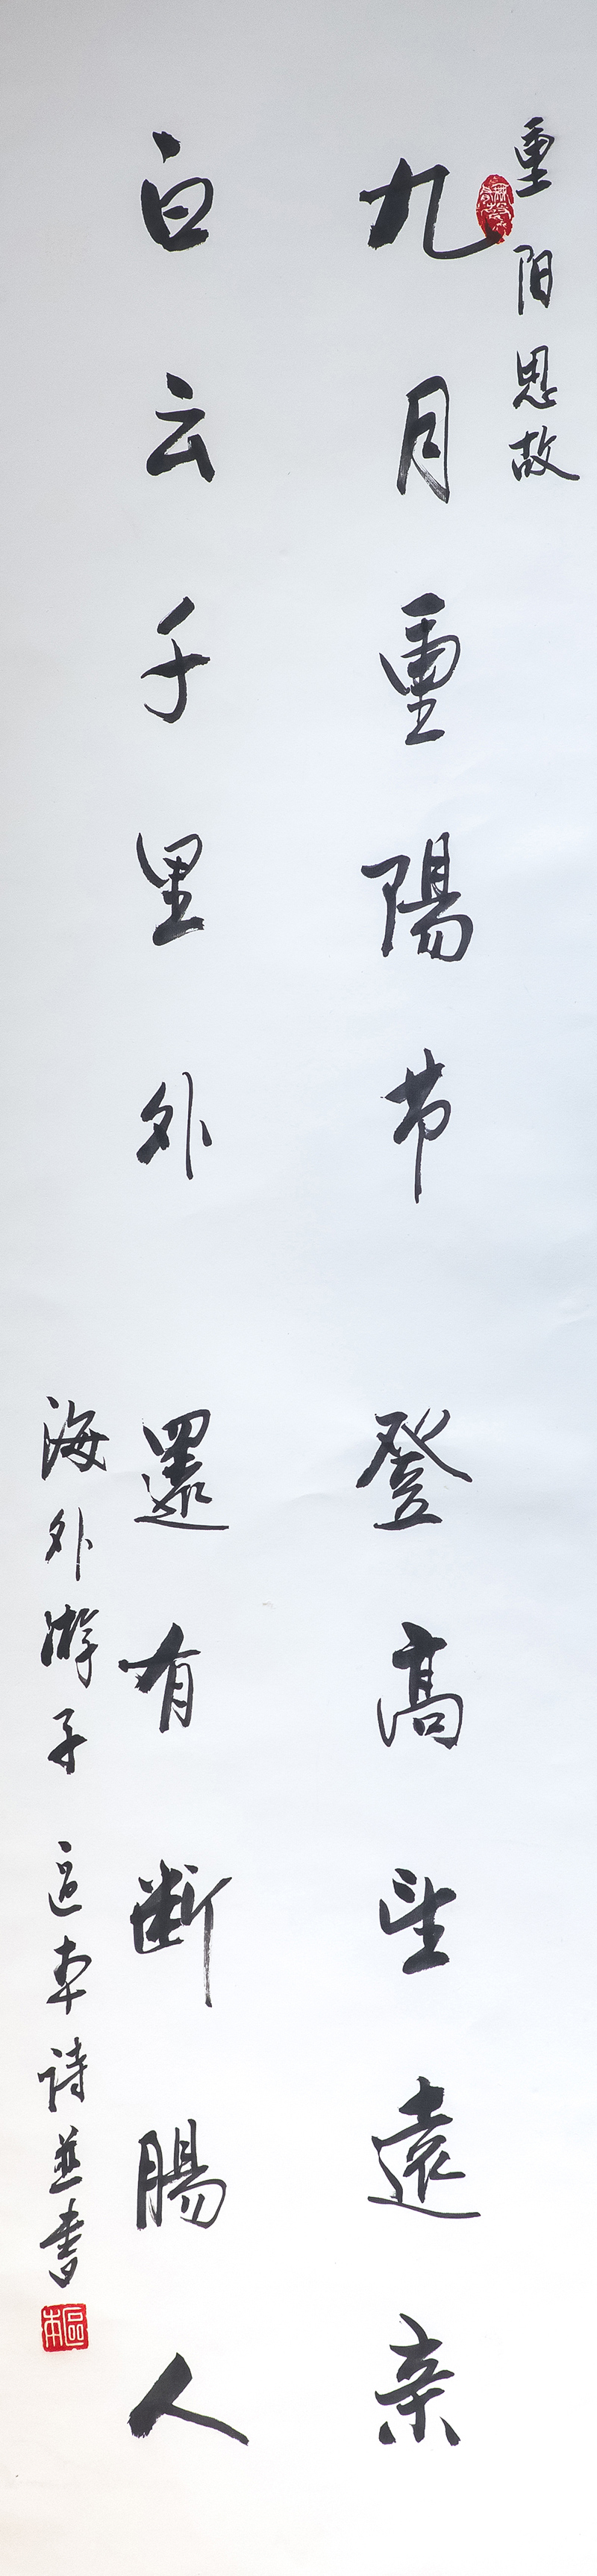 重阳思故
九月重陽节 登高望遠亲
白云千里外 還有断腸人
海外游子 區本诗並書
區本